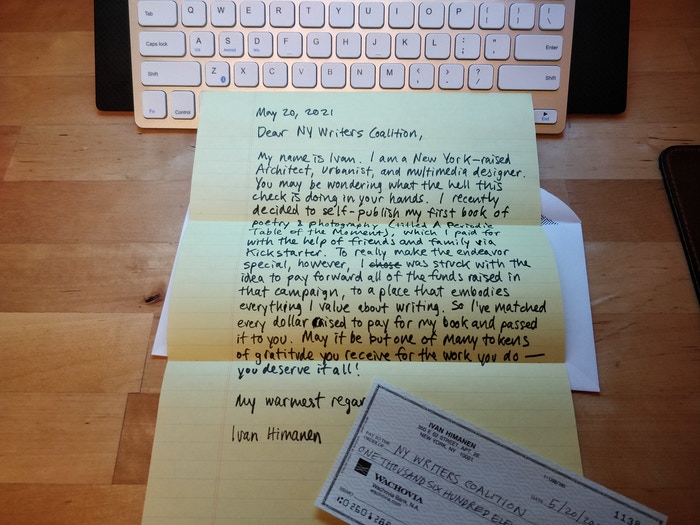 Tab Q W E R T Y U I O P
Caps lock A S D F G H J K L Enter
Shift Z X C V B N M Shift
Fn Control
May 20, 2021
Dear NY Writers Coalition,
My name is Ivan. I am a New York-raised
Architect, Urbanist, and multimedia designer.
You may be wondering what the hell this
check is doing in your hands. I recently
decided to self-publish my first book of
poetry & photography (titled A Periodic
Table of the Moment), which I paid for
with the help of friends and family via
Kickstarter. To really make the endeavor
special, however, I chose was struck with the
idea to pay forward all of the funds raised in
that campaign, to a place that embodies
everything I value about writing. So I've matched
every dollar raised to pay for my book and passed
it to you. May it be but one of many tokens
of gratitude you receive for the work you do —
you deserve it all!
My warmest regar
Ivan Himanen
IVAN HIMANEN
NEW YORK, NY
PAY TO THE
ORDER OF
NY WRITERS COALITION
DATE 5/20/20
ONE THOUSAND SIX HUNDRED
WACHOVIA
Wachovia Bank, N.A.